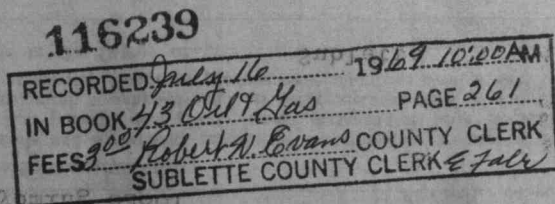 116239
RECORDED July 16 1969 10:00 AM
IN BOOK 43 Oil & Gas PAGE 261
FEES 3.00 Robert N. Evans COUNTY CLERK
SUBLETTE COUNTY CLERK